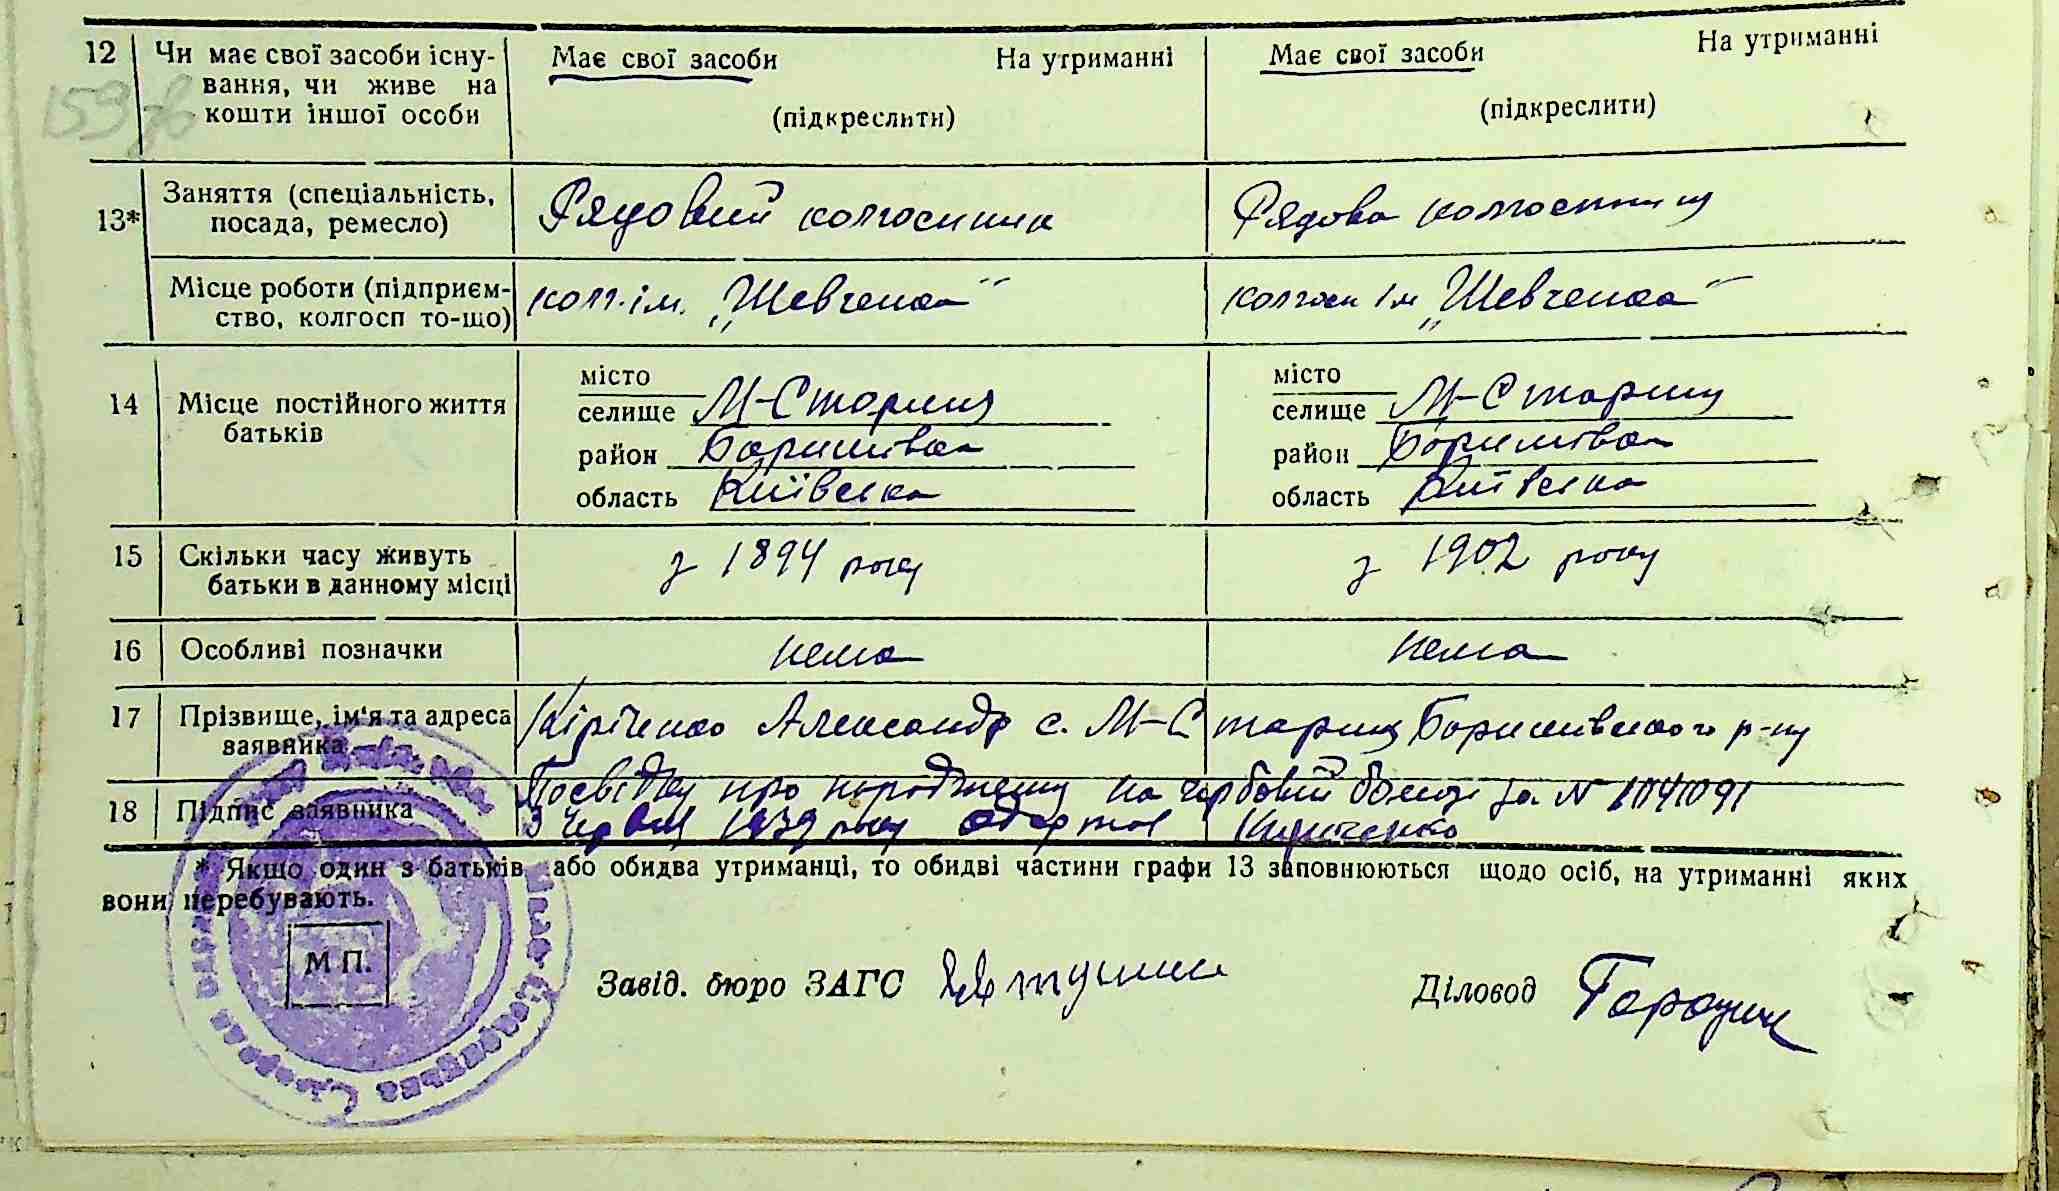 12 Чи має свої засоби існу- Має свої засоби На утриманні Має свої засоби На утриманні
вання, чи живе на
кошти іншої особи (підкреслити) (підкреслити)
13* Заняття (спеціальність, Рядовий колгоспник Рядова колгоспниця
посада, ремесло)
Місце роботи (підприєм- колг. ім. „Шевченка" колгосп ім „Шевченка"
ство, колгосп то-що)
місто місто
14 Місце постійного життя селище М-Стариця селище М-Стариця
батьків район Баришівка район Баришівка
область Київська область Київська
15 Скільки часу живуть з 1894 року з 1902 року
батьки в данному місці
16 Особливі позначки нема нема
17 Прізвище, ім'я та адреса Кіріченко Александр с. М-Стариця Баришівського р-ну
заявника
Посвідку про народженну на за N 1041091
18 Підпис заявника 3 1939 року Кириченко
* Якщо один з батьків або обидва утриманці, то обидві частини графи 13 заповнюються щодо осіб, на утриманні яких
вони перебувають.
М П.
Завід. бюро ЗАГС Діловод